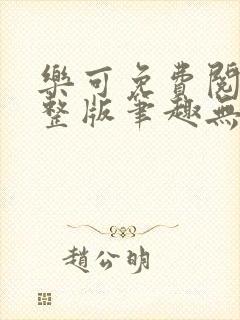 樂可免費閱
整版筆趣無
趙公明